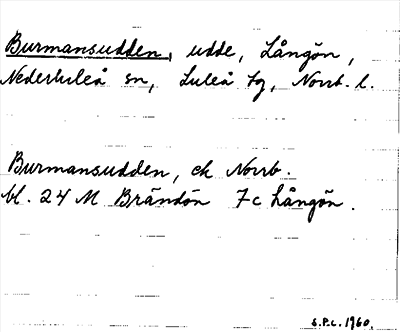 Burmansudden, udde, Långön,
Nederluleå sn, Luleå tg, Norrb. l.
Burmansudden, ek Norrb.
bl. 24 M Brändön 7c Långön.
S.P.C. 1960.